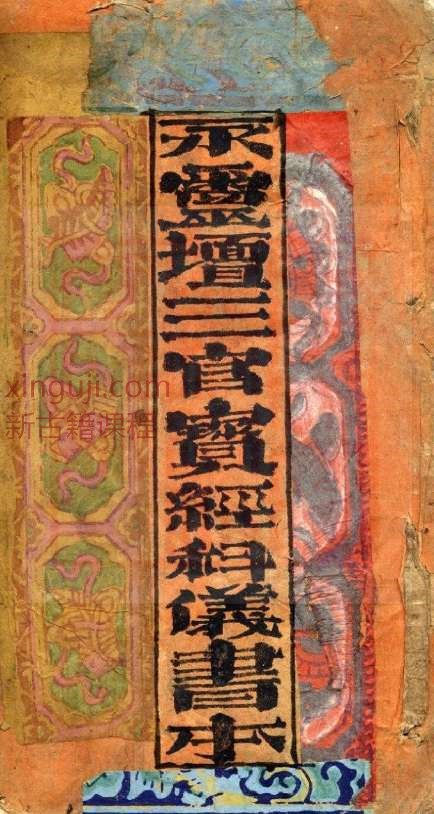 永靈壇三官寳經科儀書本
xinguji.com
新古籍课程